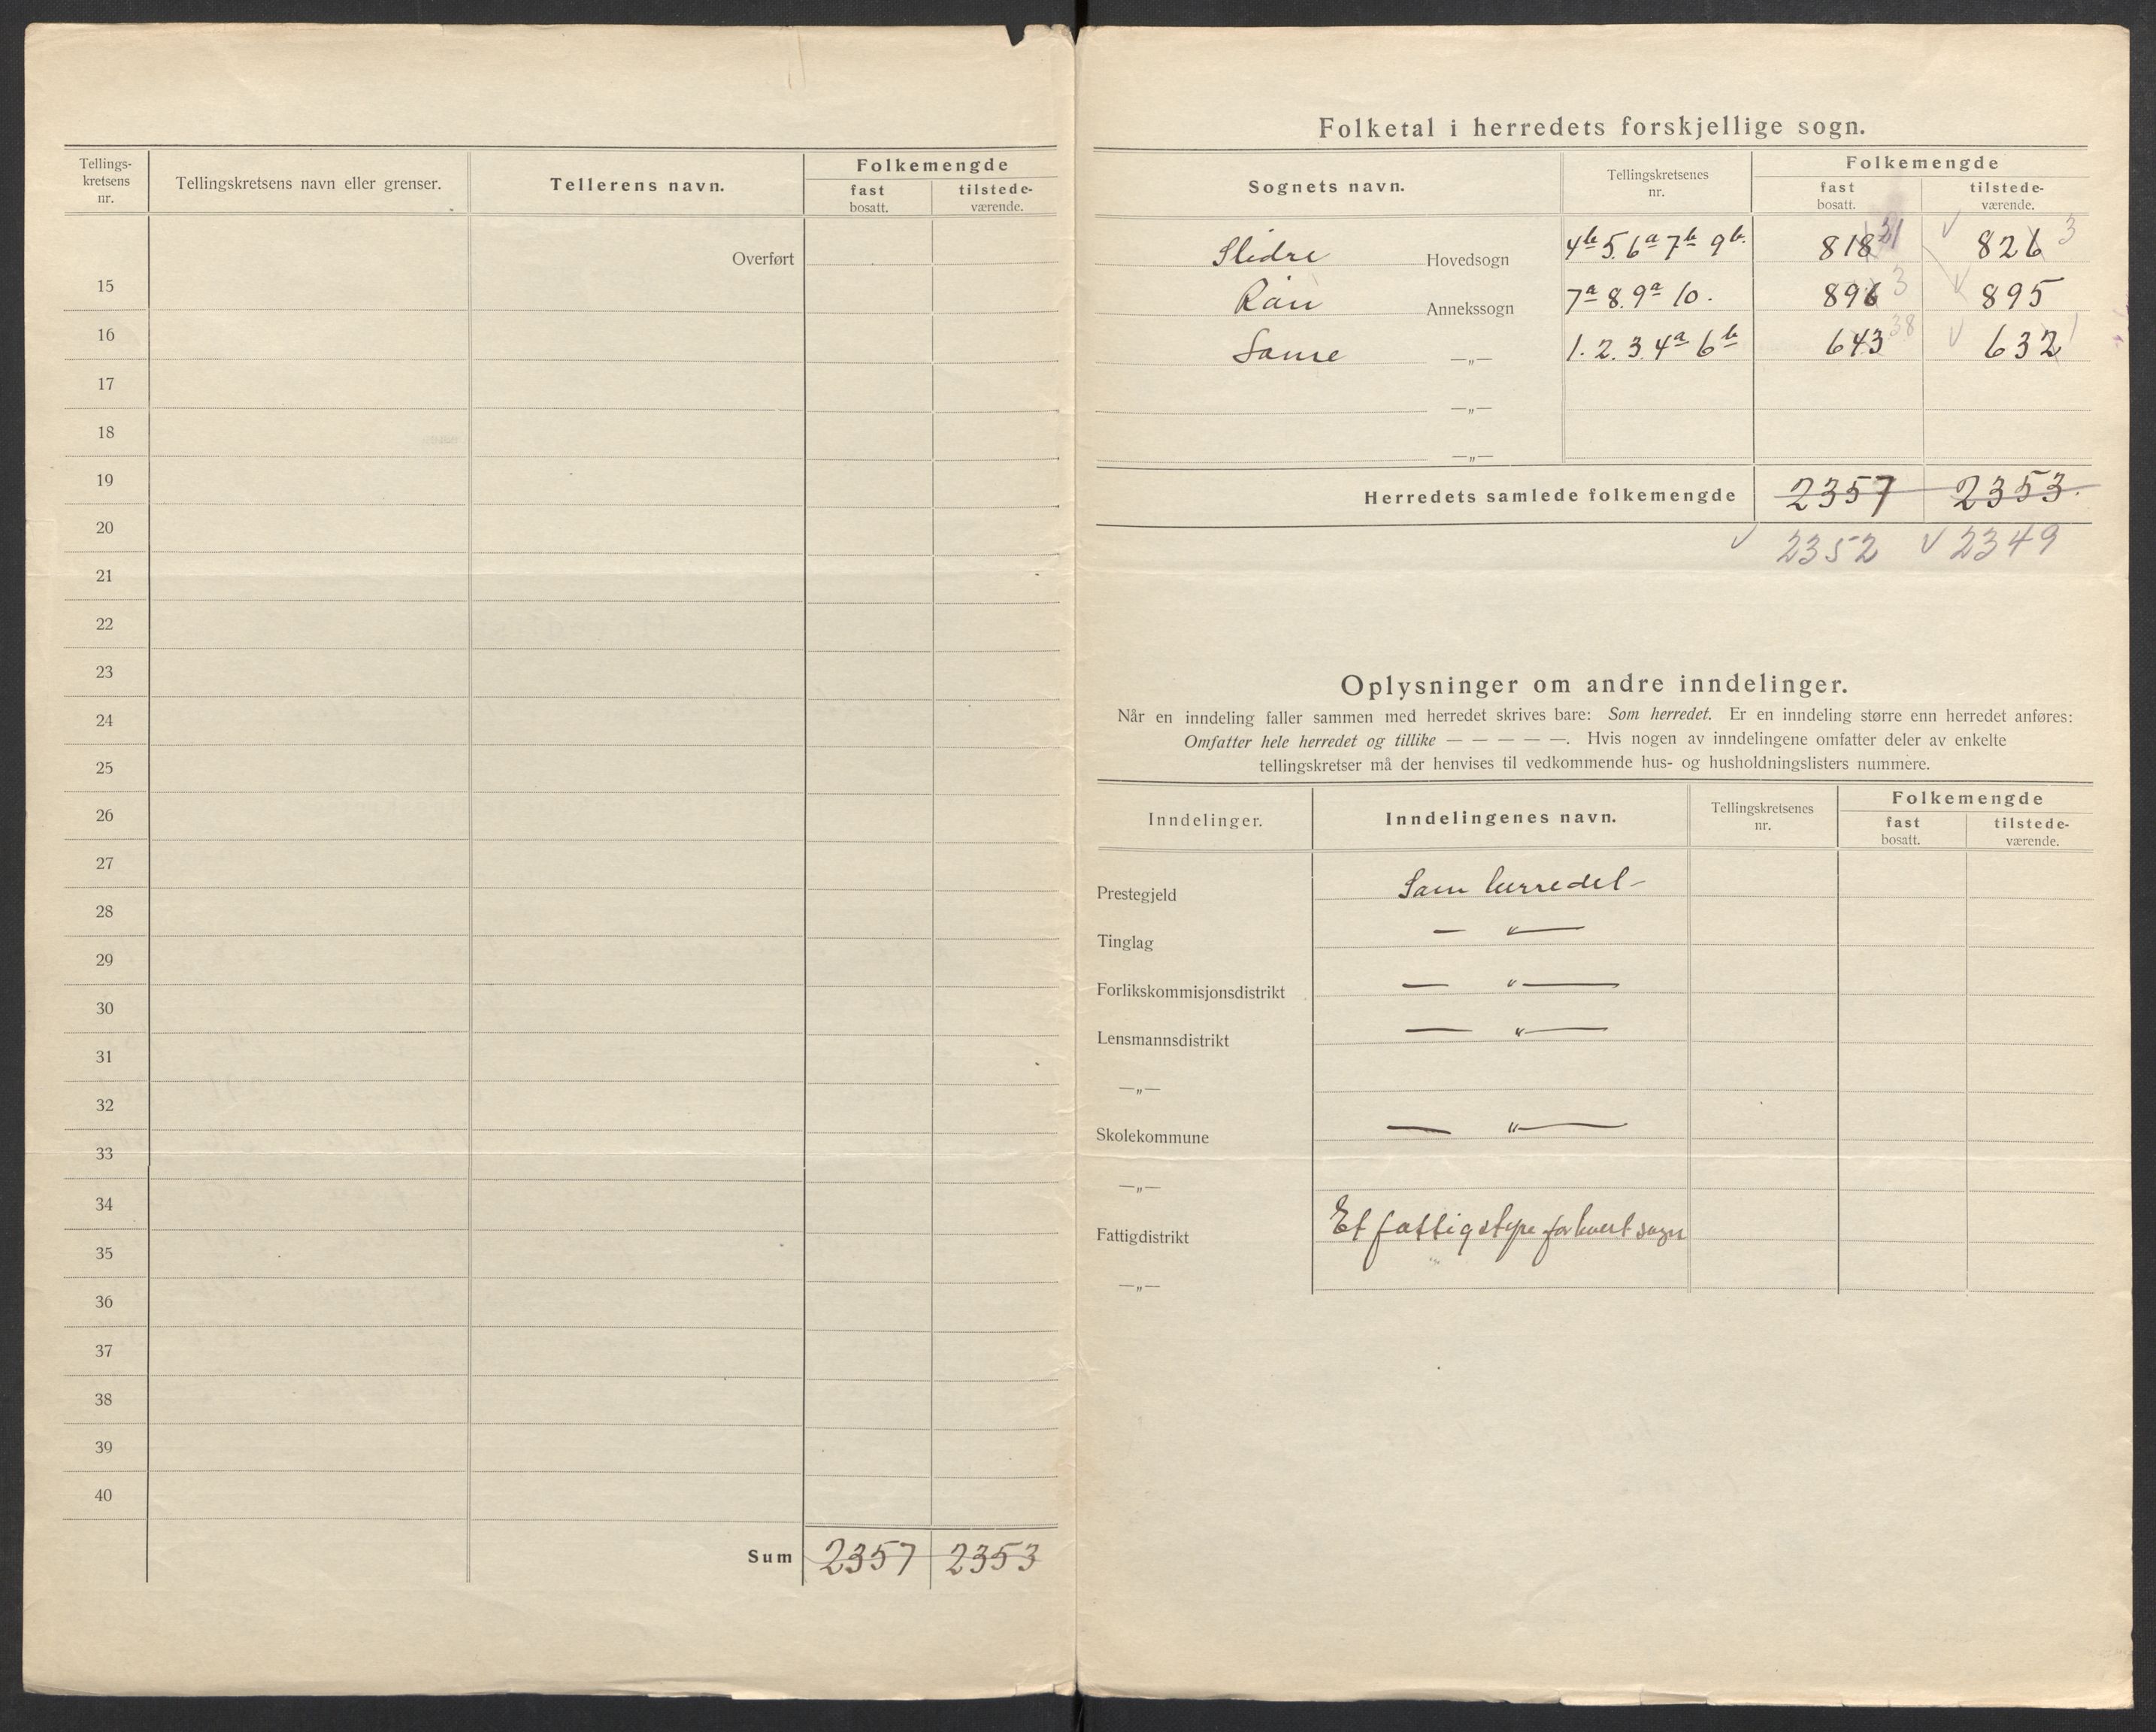 Tellings-
kretsens
nr.
Tellingskretsens navn eller grenser.
Tellerens navn.
Folkemengde
fast
bosatt.
tilstede-
værende.
Overført
15
16
17
18
19
20
21
22
23
24
25
26
27
28
29
30
31
32
33
34
35
36
37
38
39
40
Sum 2357 2353
Folketal i herredets forskjellige sogn.
Sognets navn.
Tellingskretsenes
nr.
Folkemengde
fast
bosatt.
tilstede-
værende.
Slidre Hovedsogn 4b 5. 6a 7b 9b. 818 21 826 3
Røn Annekssogn 7a 8. 9a 10. 896 3 895
Lome —„— 1. 2. 3. 4a 6b 643 38 632 1
—„—
—„—
Herredets samlede folkemengde 2357 2353.
2352 2349
Oplysninger om andre inndelinger.
Når en inndeling faller sammen med herredet skrives bare: Som herredet. Er en inndeling større enn herredet anføres:
Omfatter hele herredet og tillike — — — — —. Hvis nogen av inndelingene omfatter deler av enkelte
tellingskretser må der henvises til vedkommende hus- og husholdningslisters nummere.
Inndelinger.
Inndelingenes navn.
Tellingskretsenes
nr.
Folkemengde
fast
bosatt.
tilstede-
værende.
Prestegjeld Som herredet -
Tinglag — „ —
Forlikskommisjonsdistrikt — „ —
Lensmannsdistrikt — „ —
—„—
Skolekommune — „ —
—„—
Fattigdistrikt Et fattigstyre for hvert sogn
—„—